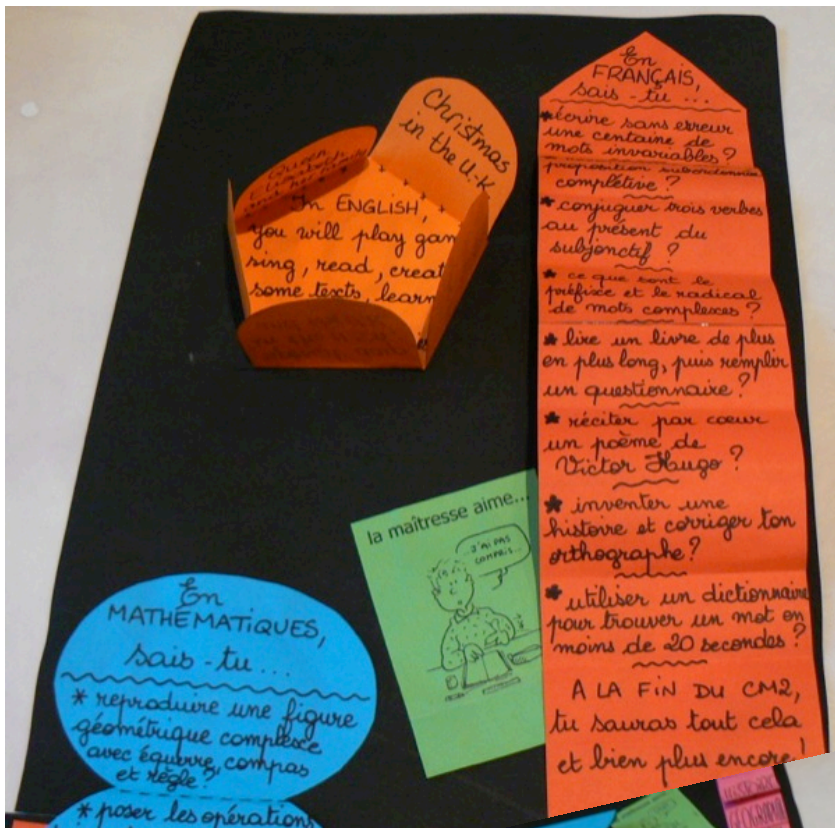 Christmas
in the U.K
Queen
Elizabeth
In ENGLISH,
you will play gam
sing, read, creat
some texts, learn
En
FRANÇAIS,
sais-tu ...
* écrire sans erreur
une centaine de
mots invariables ?
proposition subordonnée
complétive ?
* conjuguer trois verbes
au présent du
subjonctif ?
* ce que sont le
préfixe et le radical
de mots complexes ?
* lire un livre de plus
en plus long, puis remplir
un questionnaire ?
* réciter par cœur
un poème de
Victor Hugo ?
* inventer une
histoire et corriger ton
orthographe ?
* utiliser un dictionnaire
pour trouver un mot en
moins de 20 secondes ?
A LA FIN DU CM2,
tu sauras tout cela
et bien plus encore !
la maîtresse aime...
J'ai pas
compris...
En
MATHÉMATIQUES,
sais-tu ...
* reproduire une figure
géométrique complexe
avec équerre, compas
et règle ?
* poser les opérations
HISTOIRE
GEOGRAPHIE